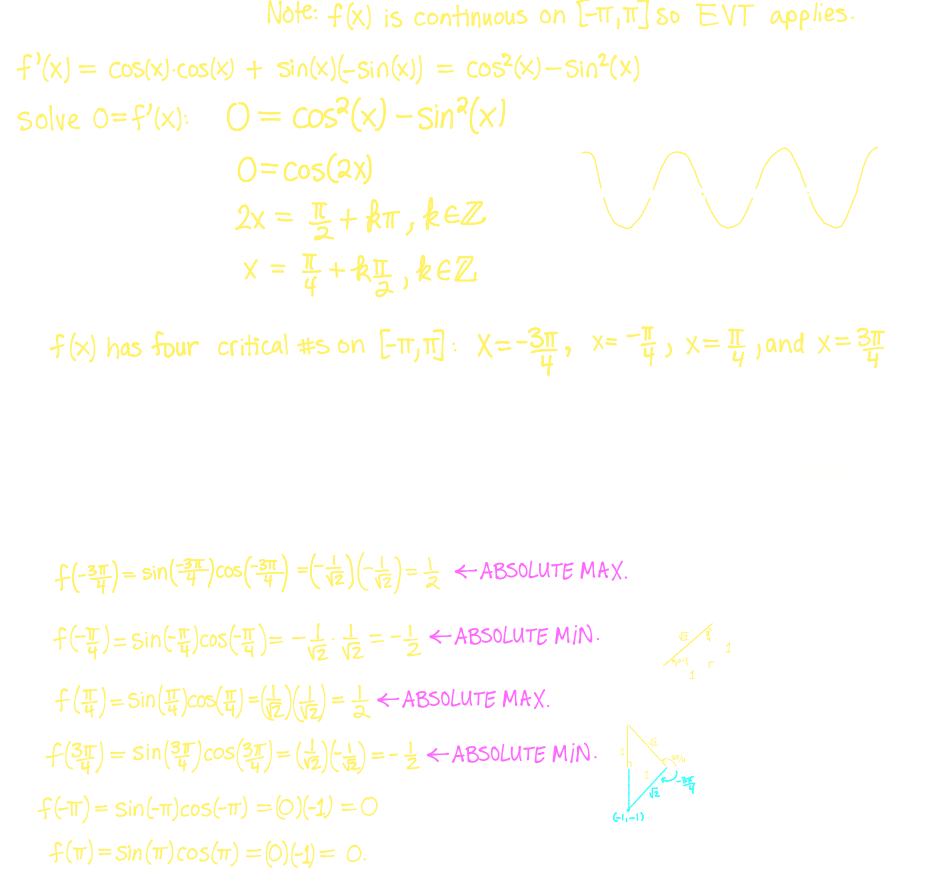 Note: f(x) is continuous on [-π,π] so EVT applies.
f'(x) = cos(x)·cos(x) + sin(x)(-sin(x)) = cos²(x)-sin²(x)
solve 0=f'(x): 0 = cos²(x) - sin²(x)
0=cos(2x)
2x = π/2 + kπ, k∈ℤ
x = π/4 + kπ/2, k∈ℤ
f(x) has four critical #s on [-π,π]: x=-3π/4, x=-π/4, x=π/4, and x=3π/4
f(-3π/4)= sin(-3π/4)cos(-3π/4) =(-1/√2)(-1/√2)=1/2 ← ABSOLUTE MAX.
f(-π/4)=sin(-π/4)cos(-π/4)= -1/√2 · 1/√2 = -1/2 ← ABSOLUTE MIN.
f(π/4)=sin(π/4)cos(π/4)=(1/√2)(1/√2)=1/2 ← ABSOLUTE MAX.
√2
1
1
f(3π/4) = sin(3π/4)cos(3π/4)=(1/√2)(-1/√2)=-1/2 ← ABSOLUTE MIN.
√2
-3π/4
(-1,-1)
f(-π)= sin(-π)cos(-π) =(0)(-1) = 0
f(π)=sin(π)cos(π)=(0)(-1)= 0.